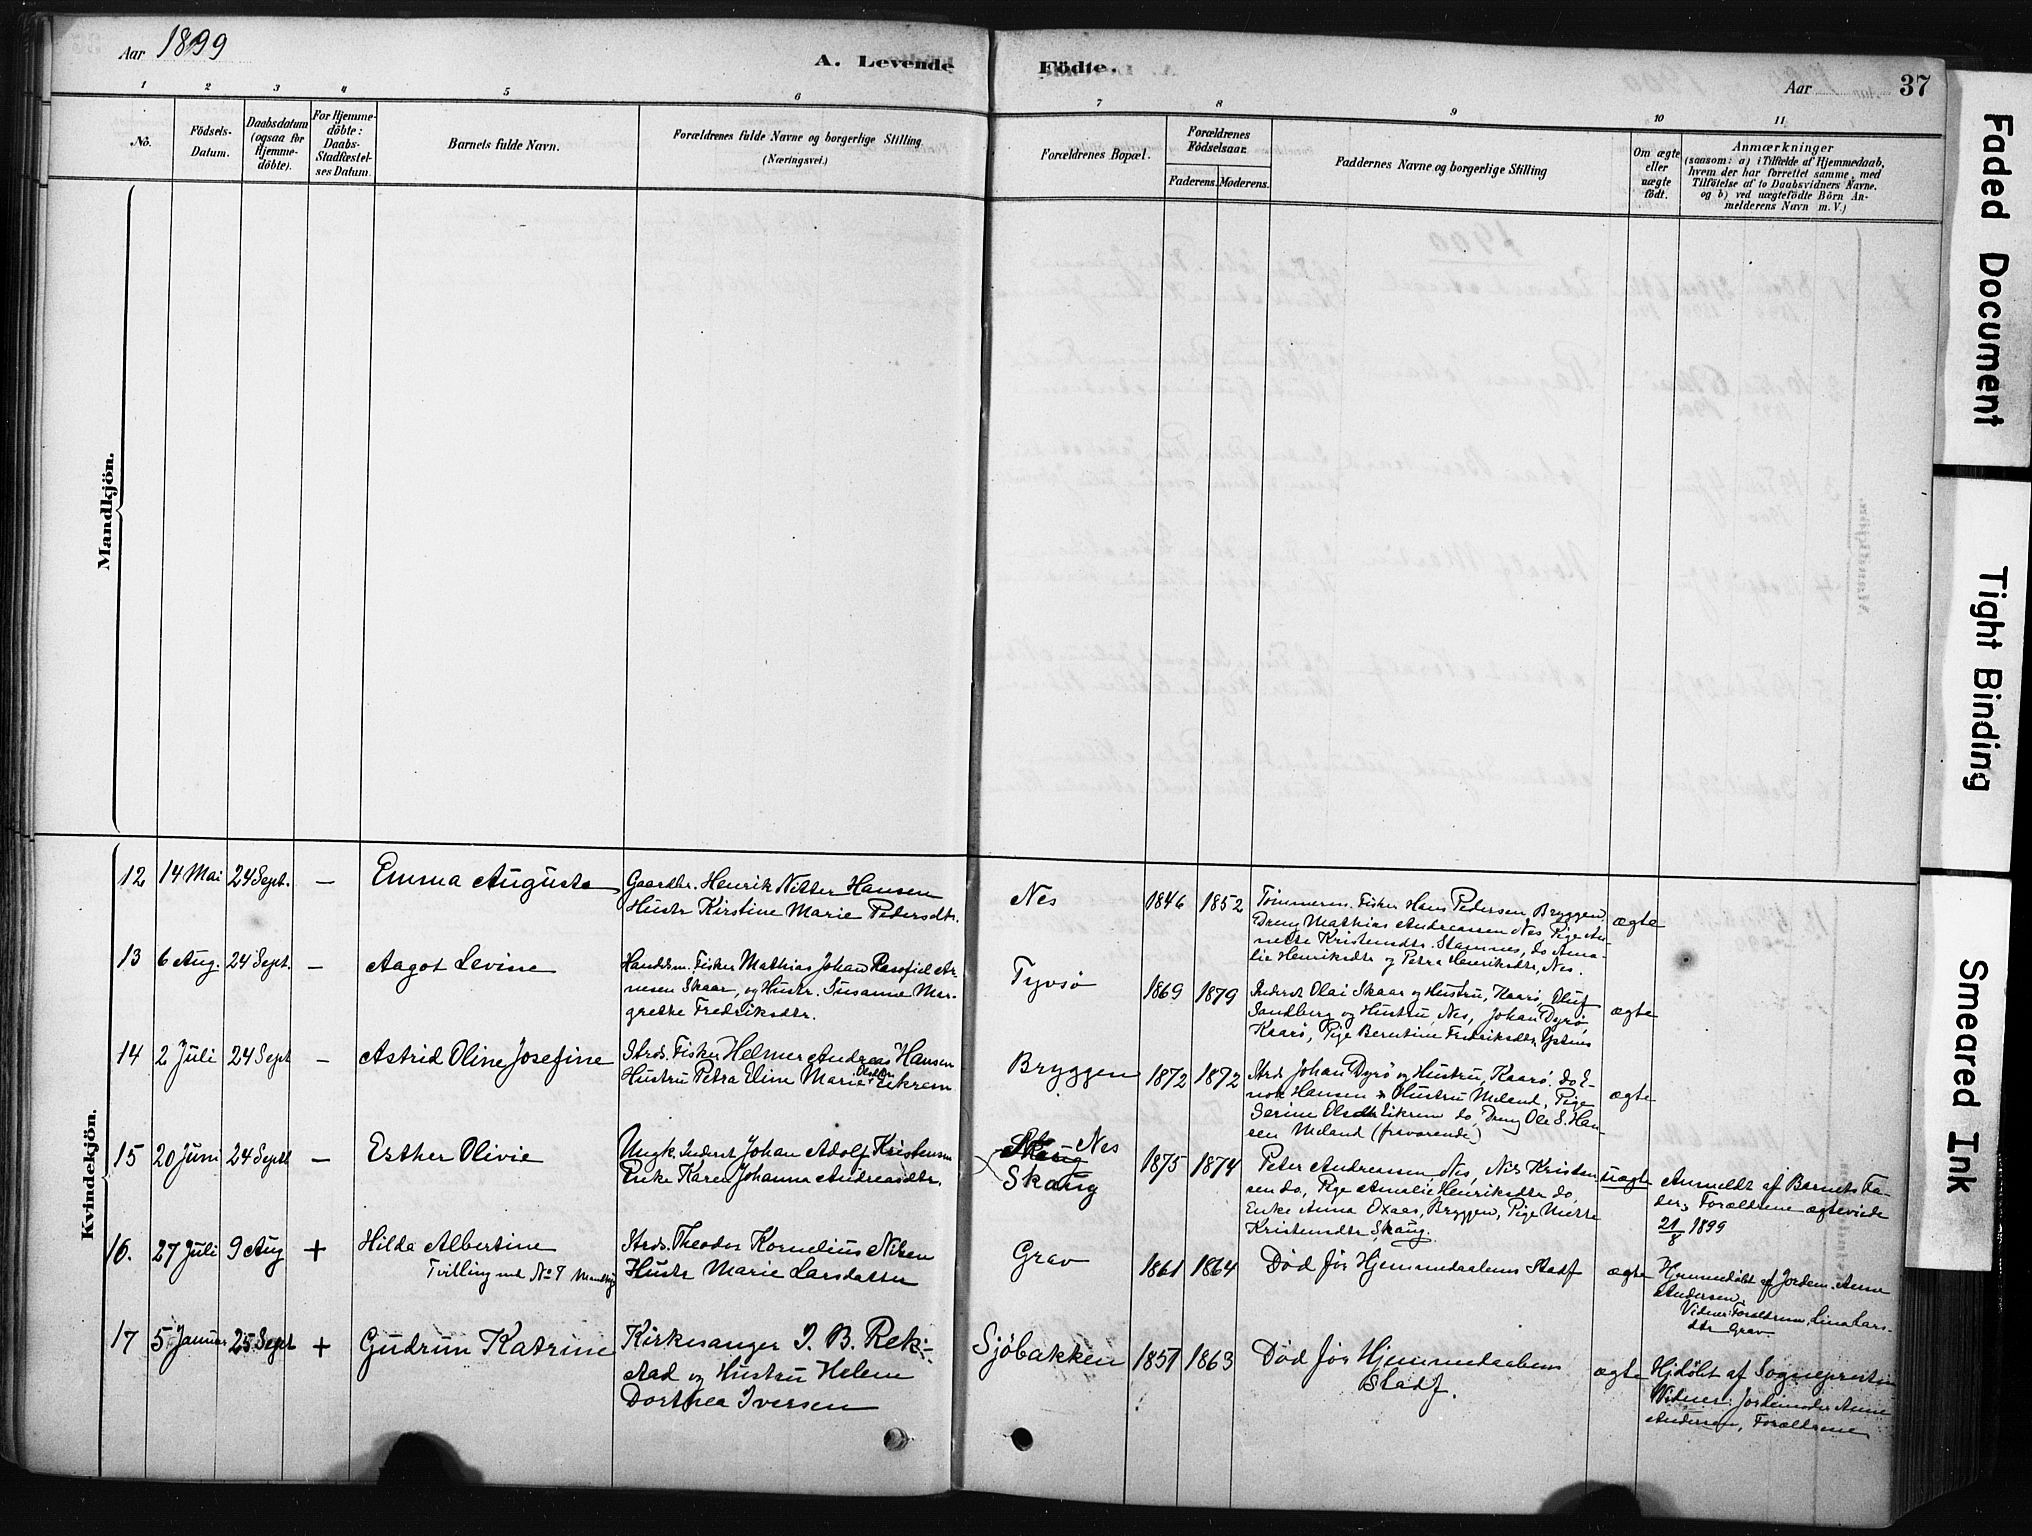 Aar 1899
A. Levende Födte.
Aar
37
1 2 3 4 5 6 7 8 9 10 11
No.
Födsels-Datum.
Daabsdatum (ogsaa for Hjemme-döbte).
For Hjemme-döbte: Daabs-Stadfæstel-ses Datum.
Barnets fulde Navn.
Forældrenes fulde Navne og borgerlige Stilling (Næringsvei.)
Forældrenes Bopæl.
Forældrenes Födselsaar.
Faderens. Moderens.
Faddernes Navne og borgerlige Stilling
Om ægte eller uægte födt.
Anmærkninger
(saasom: a) i Tilfælde af Hjemmedaab,
hvem der har forrettet samme, med
Tilföielse af to Daabsvidners Navne.
og b) ved uægtefödte Börn An-
melderens Navn m. V.)
Mandkjön.
Kvindekjön.
12 14 Mai 24 Sept. — Emma Augusta
Gaardbr. Henrik Nitter Hansen
Hustr Kirstine Marie Pedersdtr.
Nes 1846 1852
Tömmerm. Fisker Hans Pedersen Bryggen,
Dreng Mathias Andreassen Nes Pige An-
nette Kristensdtr. Stamnes, do Ama-
lie Henriksdtr og Petra Henriksdtr, Nes.
ægte
13 6 Aug. 24 Sept. — Aagot Levine
Handelsm. Fisker Mathias Johan Ar-
nesen Skaar, og Hustr. Susanne Mar-
grethe Fredriksdtr.
Tyvsö 1869 1879
Inderst Olai Skaar og Hustru, Kaarö, Oluf
Sandberg og Hustru, Nes, Johan Dyrö,
Kaarö, Pige Berntine Fredriksdtr
ægte
14 2 Juli 24 Sept — Astrid Oline Josefine
Strds. Fisker Helmer Andreas Hansen
Hustru Petra Eline Marie Olsdtr Eikrem
Bryggen 1872 1872
Strds Johan Dyrö og Hustru, Kaarö. do E-
nok Hansen & Hustru Meland, Pige
Serine Olsdtr Eikrem do, Dreng Ole S. Han-
sen Meland (fraværende)
ægte
15 20 Juni 24 Sept — Esther Olivie
Ungk. Inderst Johan Adolf Kristensen
Enke Karen Johanna Andreasdtr.
Nes
Skaug 1875 1874
Peter Andreassen Nes, Nils Kristen
sen do, Pige Amalie Henriksdtr do,
Enke Anna Oxaas, Bryggen, Pige Mette
Kristensdtr Skaug.
uægte
Anmeldt af Barnets Fa-
der, Forældrene ægteviede
21/8 1899
16. 27 Juli 9 Aug + Hilda Albertine
Tvilling med No 7 Mandkj
Strds. Theodor Kornelius Nilsen
Hustr Marie Larsdatter
Grav 1861 1864
Död för Hjemmedaabens Stadf
ægte
Hjemmedöbt af Jordem. Anne
Andersen.
Vidner: Forældrene, Lina Lars-
dtr Grav
17 5 Januar 25 Sept + Gudrun Katrine
Kirkesanger I. B. Rek-
stad og Hustru Helene
Dorthea Iversen
Sjöbakken 1857 1863
Död för Hjemmedaabens
Stadf.
ægte
Hjdöbt af Sognepresten
Vidner: Jordemoder Anne
Andersen, Forældrene
Faded Document
Tight Binding
Smeared Ink